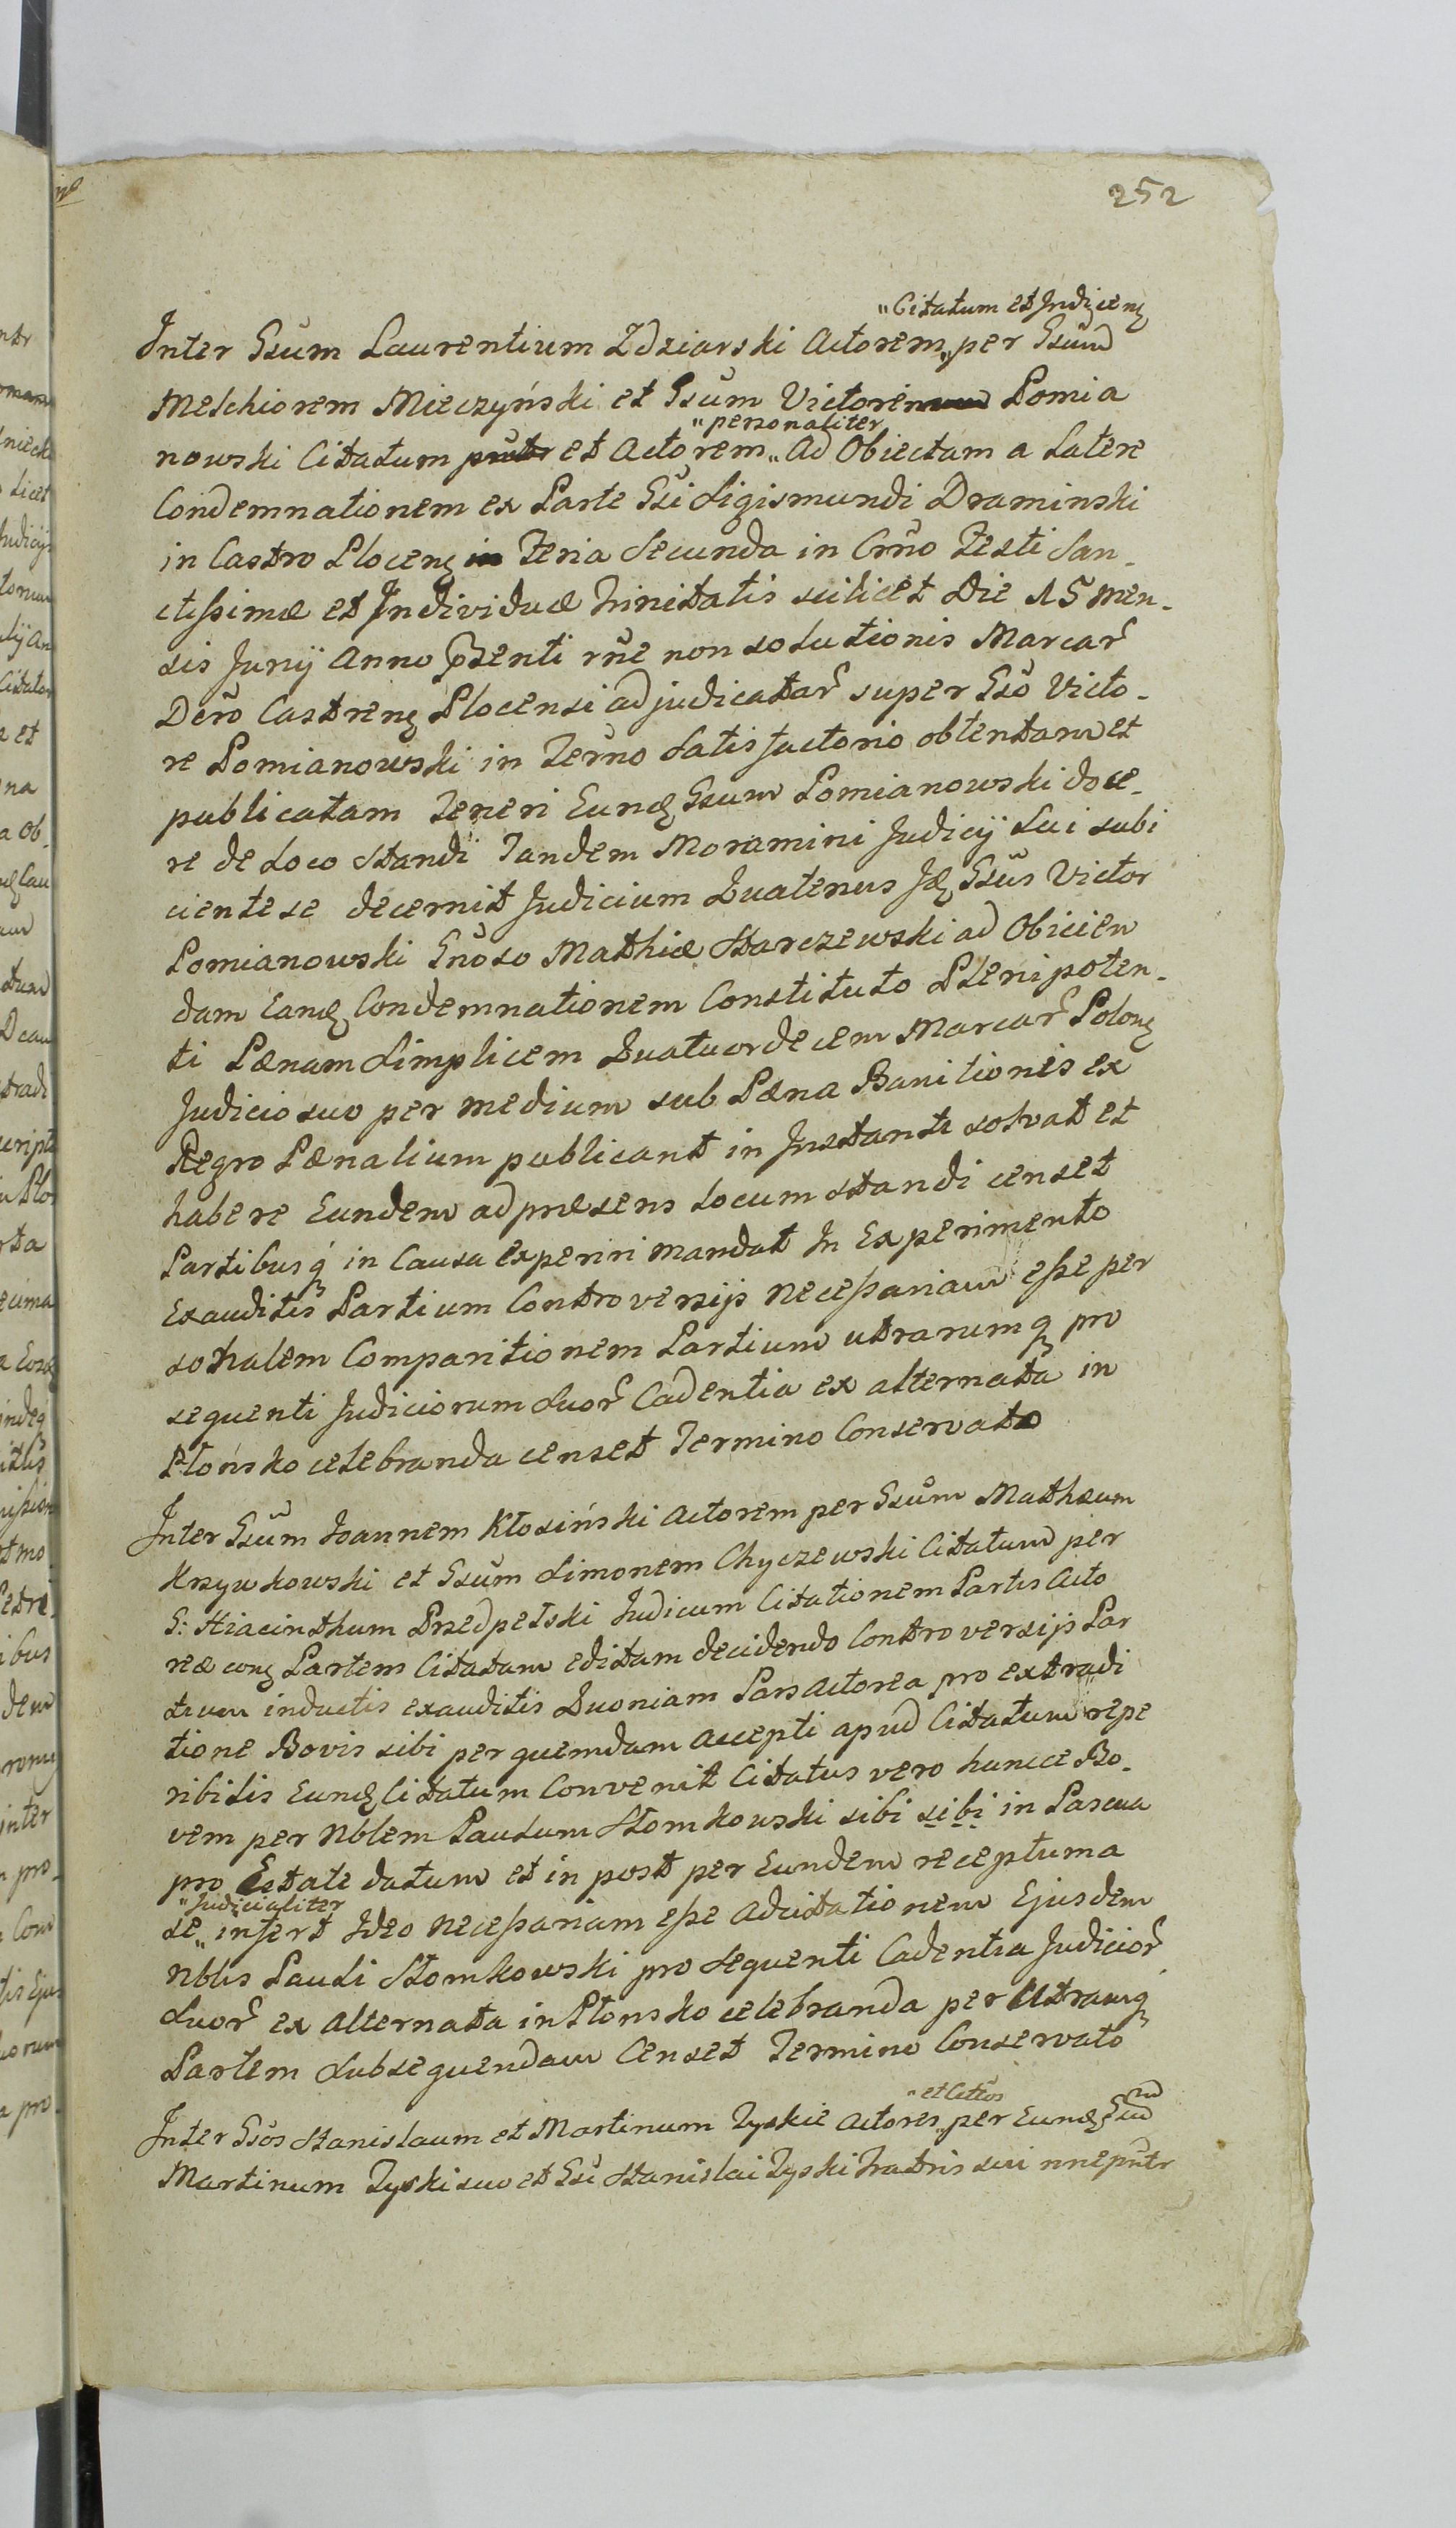 252
"Citatum et Judicenꝫ
Inter Gsum Laurentium Zdziarski Actorem,, per Gsum
Melchiorem Mieczyński et Gsum Victorem Pomia
"personaliter
nowski Citatum et Actorem,, Ad Obiectam a Latere
Condemnationem ex Parte Gsi Sigismundi Draminski
in Castro Plocenꝫ Feria Secunda in Crño Festi San-
ctissimæ et Individuæ Trinitatis scilicet Die 15 Men-
sis Junÿ Anno Pzsenti rñe non solutionis Marcar̃
Dẽro Castrenꝫ Plocensi adjudicatar̃ super Gso Victo-
re Pomianowski in Terño Satisfactorio obtentam et
publicatam Teneri Eundꝫ Gsum Pomianowski doce-
re de Loco Standi Tandem Moramini Judicÿ Sui subi
ciente se decernit Judicium Quatenus Jdꝫ Gsus Victor
Pomianowski Gnoso Mathiæ Starczewski ad Obicien
dam Eandꝫ Condemnationem Constituto Plenipoten-
ti Pænam Simplicem Quatuordecem Marcar̃ Polonꝫ
Judicio suo per medium sub Pæna Banitionis ex
Regro Pænalium publicand in Instanti solvat et
habere Eundem ad præsens Locum standi censet
Partibusq̃ in Causa experiri mandat In Experimento
Exauditis Partium Controversijs Necessariam esse per
sonalem Comparitionem Partium utrarumq̃ pro
sequenti Judiciorum Suor̃ Cadentia ex alternata in
Płońsko celebranda censet Termino Conservato
Inter Gsum Joannem Kłosiński Actorem per Gsum Mathæum
Krzywkowski et Gsum Simonem Chyczewski Citatum per
G: Hiacinthum Przedpełski Judicum Citationem Partis Acto
reæ conꝫ Partem Citatam editam decidendo Controversijs Par
tium inductis exauditis Quoniam Pars Actorea pro extradi
tione Bovis sibi per quemdam accepti apud Citatum repe
ribilis Eundꝫ Citatum Convenit Citatus vero huncce Bo-
vem per Nblem Paulum Słomkowski sibi sibi in Pascua
pro Æstate datum et in post per Eundem receptum a
"Judicialiter
se,, infert Ideo Necessariam esse Adcitationem Ejusdem
Nblis Pauli Słomkowski pro Sequenti Cadentia Judicior̃
Suor̃ ex Alternata in Płonsko celebranda per Utramq̃
Partem Subsequendam Censet Termino Conservato
"et Cittos
Inter Gsos Stanislaum et Martinum Zyskie Actores,, per Eundꝫ Gsum
Martinum Zyski suo et Gsi Stanislai Zyski Fratris sui nne pntr